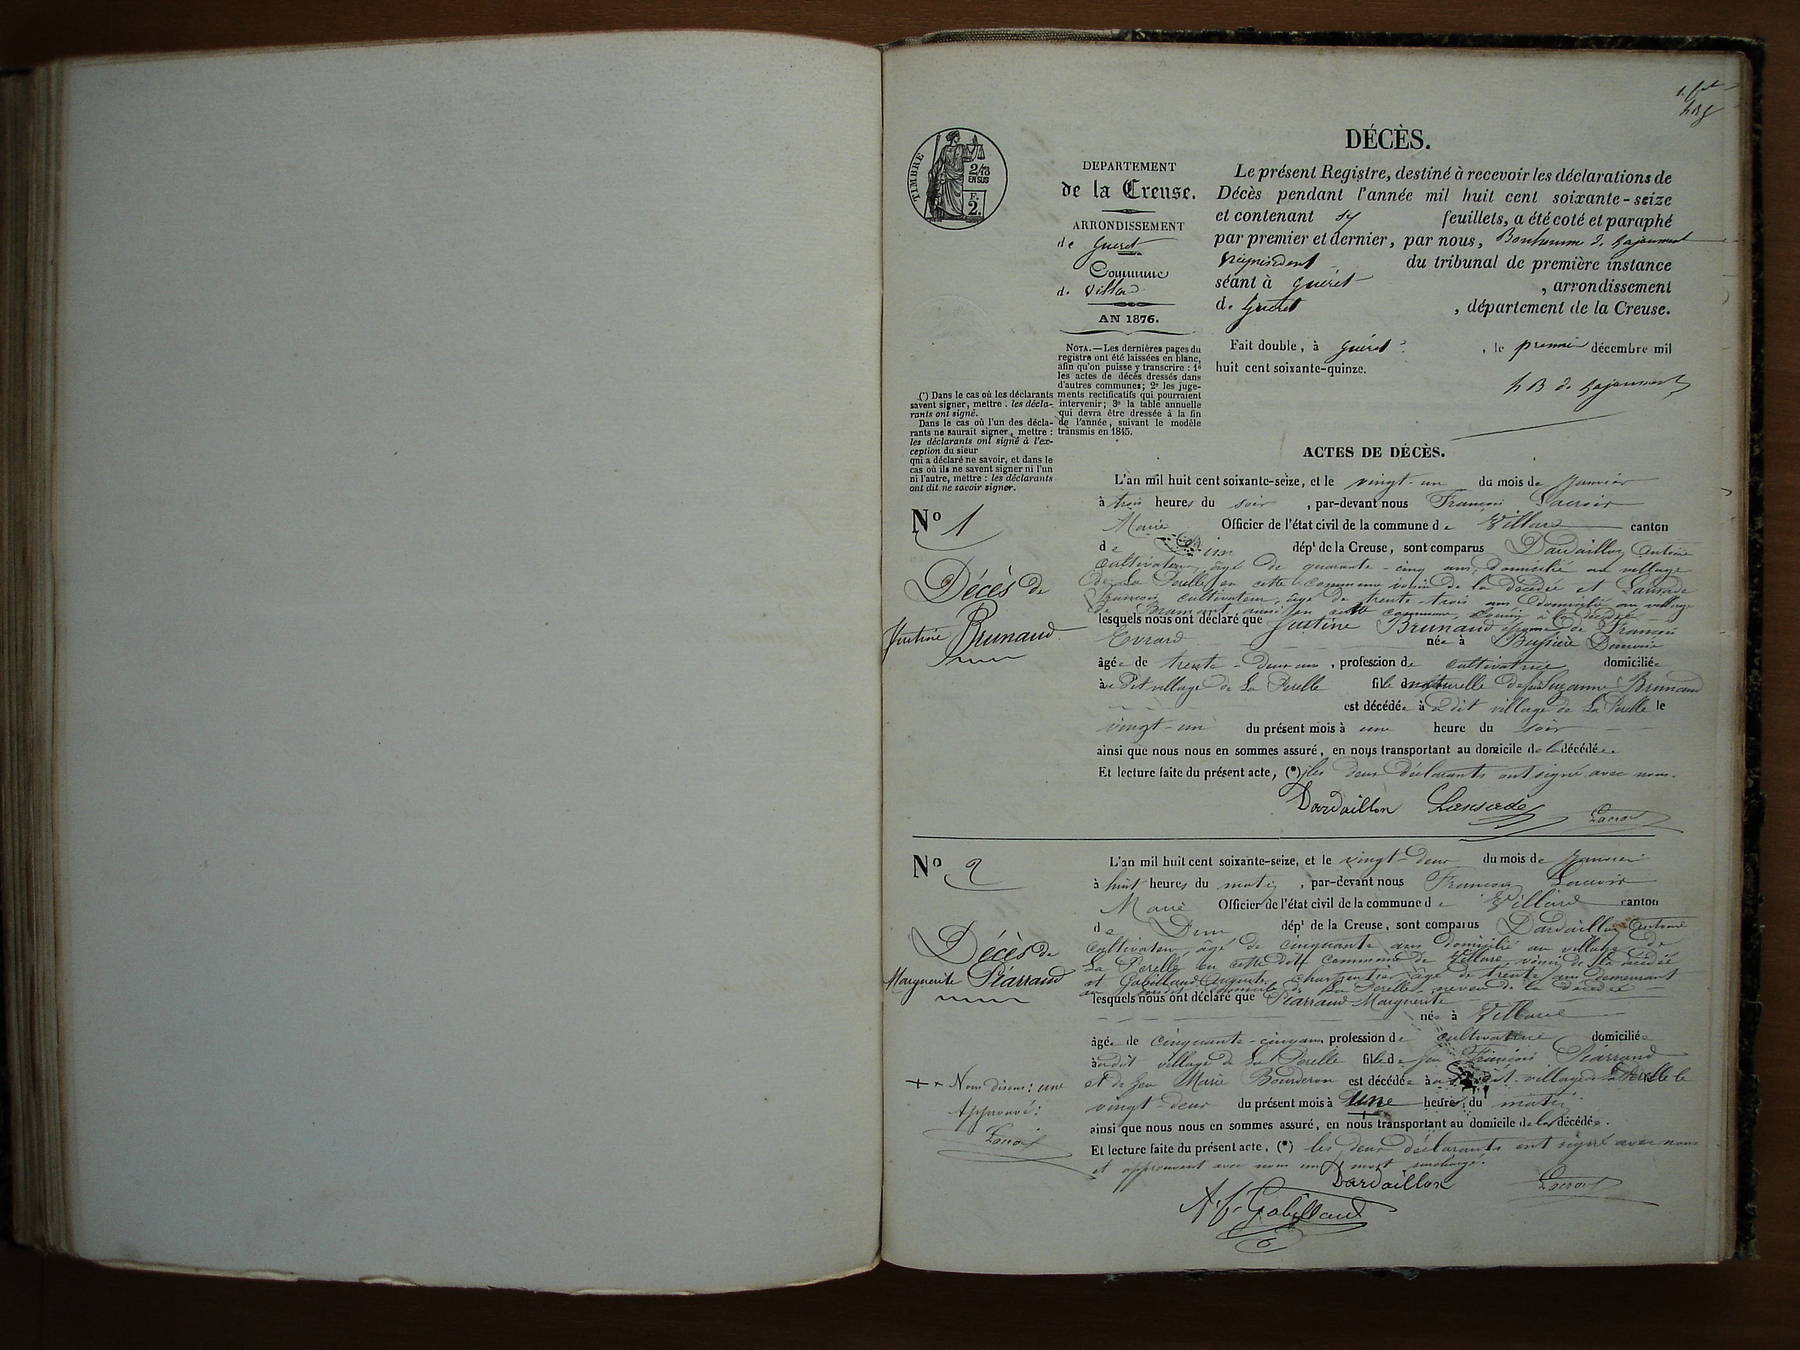 DÉCÈS.
TIMBRE
2/10
EN SUS
F.
2.
DEPARTEMENT
de la Creuse.
ARRONDISSEMENT
de Guéret
Commune
de Villard
AN 1876.
Le présent Registre, destiné à recevoir les déclarations de
Décès pendant l'année mil huit cent soixante-seize
et contenant six feuillets, a été coté et paraphé
par premier et dernier, par nous,
du tribunal de première instance
séant à Guéret, arrondissement
de Guéret, département de la Creuse.
Fait double, à Guéret, le premier décembre mil
huit cent soixante-quinze.
NOTA.—Les dernières pages du
registre ont été laissées en blanc,
afin qu'on puisse y transcrire : 1°
les actes de décès dressés dans
d'autres communes; 2° les juge-
ments rectificatifs qui pourraient
intervenir; 3° la table annuelle
qui devra être dressée à la fin
de l'année, suivant le modèle
transmis en 1845.
(*) Dans le cas où les déclarants
savent signer, mettre : les décla-
rants ont signé.
Dans le cas où l'un des décla-
rants ne saurait signer, mettre :
les déclarants ont signé à l'ex-
ception du sieur
qui a déclaré ne savoir, et dans le
cas où ils ne savent signer ni l'un
ni l'autre, mettre : les déclarants
ont dit ne savoir signer.
ACTES DE DÉCÈS.
N° 1
Décès de
Justine Brunaud
L'an mil huit cent soixante-seize, et le vingt-un du mois de Janvier
à trois heures du soir, par-devant nous François Lacroix
Maire Officier de l'état civil de la commune de Villard canton
de Dun dépt de la Creuse, sont comparus Dardaillon Antoine
cultivateur, âgé de quarante-cinq ans, domicilié au village
de La Perelle, en cette commune voisin de la décédée et Lansade
François cultivateur, âgé de trente-trois ans domicilié au village
de aussi en cette commune, voisin à la décédée
lesquels nous ont déclaré que Justine Brunaud épouse de François
Evrard née à Bussière Dunoise
âgée de trente-deux ans, profession de cultivatrice domiciliée
au dit village de La Perelle fille naturelle de Suzanne Brunaud
est décédée au dit village de La Perelle le
vingt-un du présent mois à une heure du soir
ainsi que nous nous en sommes assuré, en nous transportant au domicile de la décédée.
Et lecture faite du présent acte, (*) les deux déclarants ont signé avec nous.
Dardaillon Lansade Lacroix
N° 2
Décès de
Marguerite Piarraud
L'an mil huit cent soixante-seize, et le vingt-deux du mois de Janvier
à huit heures du matin, par-devant nous François Lacroix
Maire Officier de l'état civil de la commune de Villard canton
de Dun dépt de la Creuse, sont comparus Dardaillon Antoine
cultivateur, âgé de cinquante ans domicilié au village de
La Perelle en cette dite commune de Villard, voisin de la décédée
et Gabillaud Auguste charpentier âgé de trente ans demeurant
au de La Perelle, neveu de la décédée
lesquels nous ont déclaré que Piarraud Marguerite
née à Villard
âgée de cinquante-cinq ans, profession de cultivatrice domiciliée
au dit village de La Perelle fille de feu François Piarraud
et de feu Marie Bourderon est décédée au dit village de La Perelle le
vingt-deux du présent mois à une heure du matin
ainsi que nous nous en sommes assuré, en nous transportant au domicile de la décédée.
Et lecture faite du présent acte, (*) les deux déclarants ont signé avec nous
et approuvent avec nous un mot surchargé.
Nous disons : une
Approuvé :
Lacroix
Dardaillon Lacroix
Gabillaud